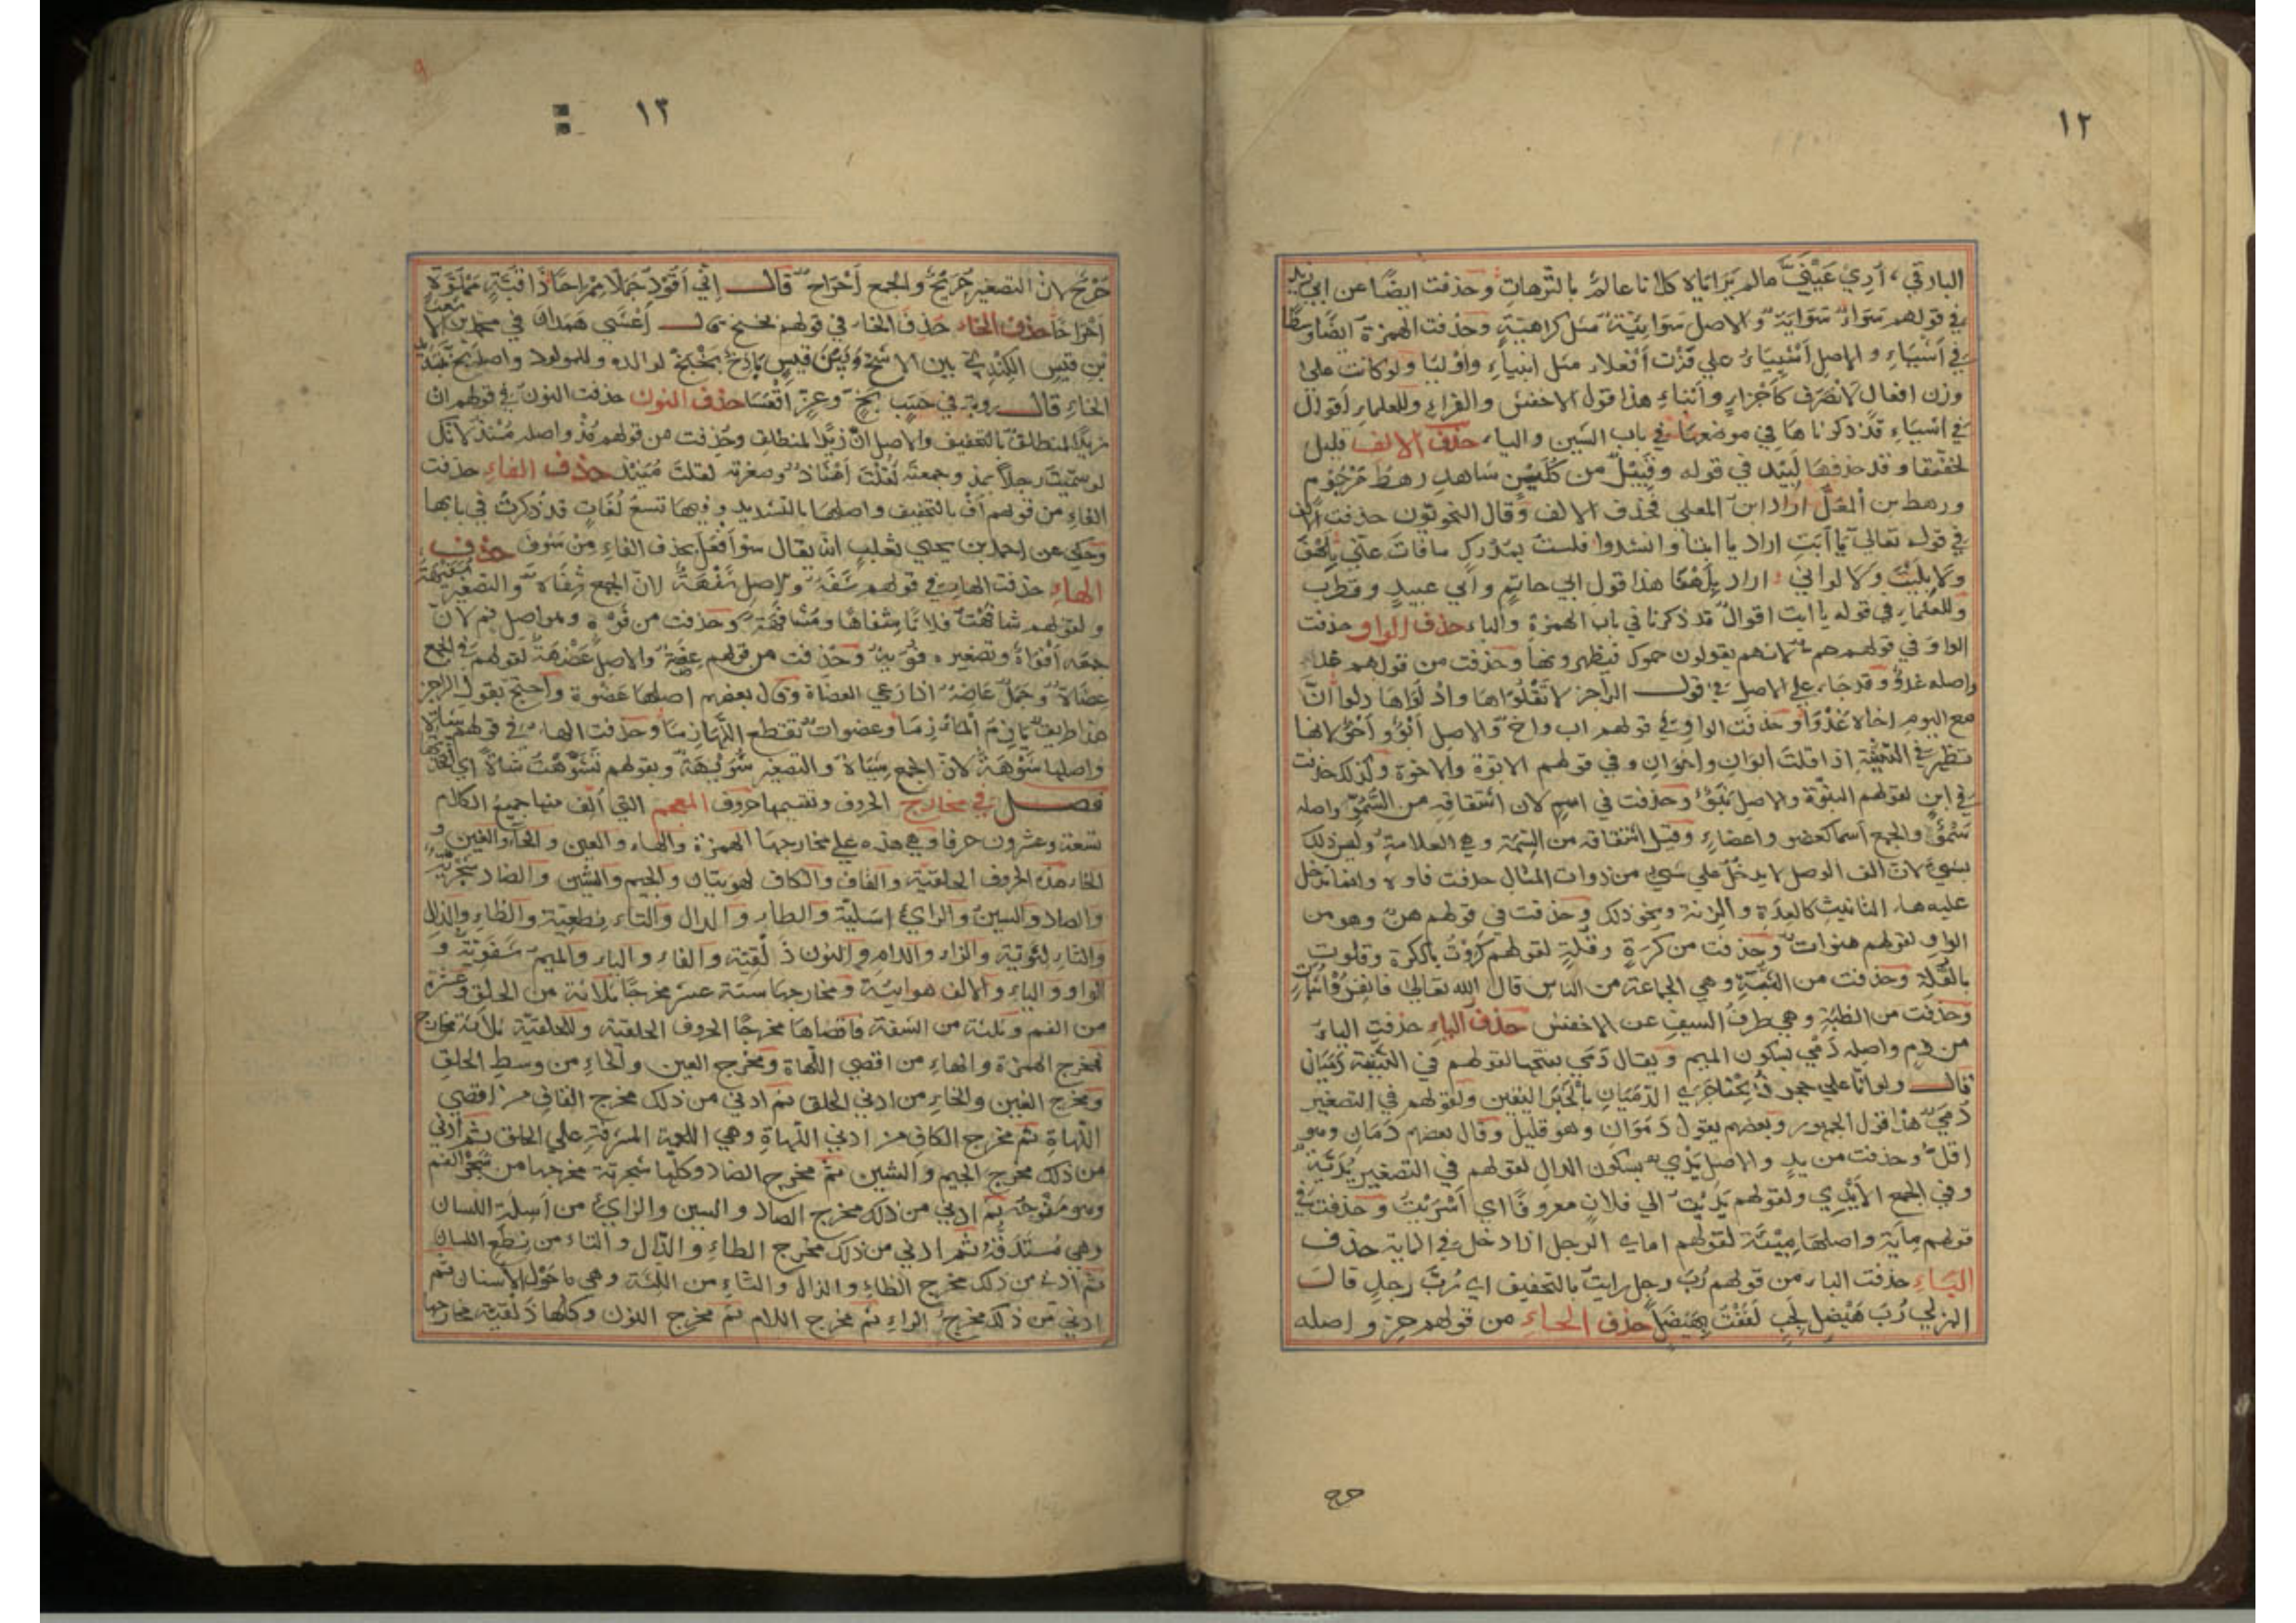 ١٢
البارقي، أُرِي عَيْنَيَّ مالم تَرْأَيَاه كلانا عالمٌ بالتُّرهاتِ وحذفت ايضًا عن ابي زيد
في قولهم سَواءٌ سَوَايَةٌ والاصل سَوَايِيَةٌ مثل كراهيَةٍ وحذفت الهمزة ايضًا وسطًا
في أشياءِ والاصل أشْيِيَاءُ علي وزن أفعلاء مثل انبياءِ وأوْليا ولو كانت علي
وزن افعال لانصرف كأجزاءٍ وأثناءٍ هذا قول الاخفش والفراءِ وللعلماءِ أقوال
في اشياءِ قد ذكرناها في موضعها في باب الشين والياء حذف الالف قليل
لخفتها وقد حذفها لبيد في قوله وقَبِيلٌ من لُكَيْزٍ شاهدٍ رهط مَرْجُوْمٍ
ورهط بن المُعَلْ اراد ابن المعلي فحذف الالف وقال النحويون حذفت الالف
في قوله تعالي يا أبتِ اراد يا ابتا وانشدوا فلست بمُدْرِكٍ ما فاتَ عنّي بِلَهْفَ
ولا بِلَيْتَ ولا لواني اراد بِلَهْفَا هذا قول ابي حاتِمٍ وابي عبيدٍ وقطرب
وللعلماءِ في قوله يا ابت اقوالٌ قد ذكرنا في باب الهمزة والباء حذف الواو حذفت
الواوَ في قولهم حم لانهم يقولون حموك فيظهرونها وحذفت من قولهم غد
واصله غَدْوٌ وقد جاء علي الاصل في قول الراجز لا تَقْلُوَاها وادْلُوَاهَا دلوا انَّ
مع اليوم اخاه غَدْوَا وحذفت الواو في قولهم اب واخ والاصل أبَوٌ وأخَوٌ لانها
تظهر في التثنية اذا قلت ابوان واخوان وفي قولهم الابوة والاخوة وكذلك حذفت
في ابنٍ لقولهم البنوّة والاصل بَنَوٌ وحذفت في اسمٍ لان اشتقاقه من السُّمُوِّ واصله
سُمُوٌ والجمع أسما كعضو واعضاءٍ وقيل اشتقاقه من السِّمَة وهي العلامة وليس ذلك
بشيءٍ لان الف الوصل لا يدخل علي شيءٍ من ذوات المثال حذفت فاوه وانما تدخل
عليه هاء التانيث كالعدة والزنة ونحو ذلك وحذفت في قولهم هن وهو من
الواو لقولهم هنوات وحذفت من كُرَةٍ وقُلَةٍ لقولهم كَرَوْتُ بالكرة وقلوت
بالقُلة وحذفت من الثُبَةِ وهي الجماعة من الناس قال الله تعالي فانفِرُوا ثُباتٍ
وحذفت من الظبَةِ وهي طرفُ السيف عن الاخفش حذف الياءِ حذفت الياءُ
من دم واصله دَمْي بسكون الميم ويقال دَمَي بفتحها لقولهم في التثنية دَمَيَان
قال ولو انا علي حجر ذُبِحْنَا جَرَي الدَّمَيَانِ بالْخَبَرِ اليقين ولقولهم في التصغير
دُمَيّ هذا قول الجمهور وبعضهم يقول دَمَوَان وهو قليل وقال بعضهم دَمَانِ وهو
اقلّ وحذفت من يدٍ والاصل يَدْيٌ بسكون الدال لقولهم في التصغير يُدَيَّة
وفي الجمع الأَيْدِي ولقولهم يَدَيْتُ الي فلان معروفًا اي أسْدَيْتُ وحذفت في
قولهم مِأية واصلها مِئْيَة لقولهم اماي الرجل اذا دخل في الماية حذف
الباءِ حذفت الباء من قولهم رُبَ رجل رايت بالتخفيف اي رُبَّ رجلٍ قال
الهزلي رُبَ هَيْضَلٍ لَجِبٍ لَفَفْتُ بِهَيْضَلٍ حذف الحاءِ من قولهم حِرٌ واصله
حرح
١٣
٩
حِرْحٌ لان التصغير حُرَيْحٌ والجمع أحْرَاحٌ قال إنّي أقُوْدُ جَمَلًا مِمْرَاحًا ذا قُبَّةٍ مَمْلُوْةٍ
أحْرَاحًا حذف الخاءِ حَذِفُ الخاء في قولهم بخٍ بخٍ قال أعْشَي هَمدان في محمد بن الاشعث
بْنِ قيسٍ الكنديّ بين الاشَجّ وبَيْنَ قَيْسٍ باذِخٌ بَخْبَخْ لوالده وللمولود واصله بخّ بتشديد
الخاءِ قال روبة في حَسَبٍ بَخٍّ وعِزٍّ اقْعَسَا حذف النون حذفت النون في قولهم انْ
زيدًا لمنطلق بالتخفيف والاصل انّ زيدًا لمنطلق وحُذفت من قولهم مُذْ واصله مُنْذُ لانك
لو سمّيت رجلًا بمذ وجمعته لقُلْتَ أمْنَاذ وصغرته لقلتَ مُنَيْذ حذف الفاءِ حذفت
الفاءِ من قولهم أفْ بالتخفيف واصلها بالتشديد وفيها تسعُ لُغَاتٍ قد ذُكرتْ في بابها
وحُكي عن احمد بن يحيي ثعلب انه يقال سَوْ أفْعَلُ بحذف الفاءِ مِنْ سَوفَ حذف
الهاءِ حذفت الهاء في قولهم شَفَة والاصل شَفْهَةٌ لانّ الجمع شِفَاه والتصغير شُفَيْهَة
ولقولهم شافهتُ فلانًا شِفَاهًا ومُشَافَهةً وحذفت من فُوْهٍ وهو اصل فم لانّ
جمعه أفْوَاهٌ وتصغيره فُوَيْهٌ وحُذفت من قولهم عِضَةٌ والاصل عِضْهَةٌ لقولهم في الجمع
عِضَاهٌ وجملٌ عَاضِهٌ اذا رعي العضاة وقال بعضهم اصلها عضوة واحتج بقول الراجز
هذا طريقٌ يَازِمُ المآزِمَا وعضواتٌ تقطع اللّهَازِمَا وحذفت الهاء في قولهم شاة
واصلها شَوْهَةٌ لانّ الجمع شِيَاهٌ والتصغير شُوَيْهَةٌ وبقولهم تَشَوَّهْتُ شاةً اي اتخذتها
فصل في مخارج الحروف وتقسيمها حروف المعجم التي أُلّف منها جميع الكلام
تسعة وعشرون حرفا وهي هذه علي مخارجها الهمزة والهاء والعين والحاء والغين و
الخاء هذه الحروف الحلقية والقاف والكاف لهويتان والجيم والشين والضاد شجرية
والصاد والسين والزاي اسَليّة والطاء والدال والتاء نِطعيّة والظاءِ والذال
والثاءِ لثويّة والراء واللام والنون ذَلْقيّة والفاء والباء والميم شَفَويّة و
الواو والياءِ والالف هوايية ومخارجها ستة عشر مخرجًا ثلاثة من الحلق وعشرة
من الفم وثلثة من الشفة فاقصاها مخرجًا الحروف الحلقية وللحلقيّة ثلاثة مخارج
فمخرج الهمزة والهاءِ من اقصي اللّهاة ومخرج العين والحاءِ من وسط الحلق
ومخرج الغين والخاءِ من ادني الحلق ثم ادني من ذلك مخرج القاف من اقصي
اللهاةِ ثم مخرج الكاف من ادني اللّهاةِ وهي اللحمة المشرفة علي الحلق ثم ادني
من ذلك مخرج الجيم والشين ثم مخرج الضاد وكلّها شجرية مخرجها من شَجْرِ الفم
وهو مَفْرَجُه ثم ادني من ذلك مخرج الصاد والسين والزاي من أسلة اللسان
وهي مُسْتَدَقُّهُ ثم ادني من ذلك مخرج الطاءِ والدّال والتاء من نِطع اللسان
ثم ادني من ذلك مخرج الظاءِ والذال والثاءِ من اللثة وهي ما حَوْل الاسنان ثم
ادني من ذلك مخرج الراءِ ثم مخرج اللام ثم مخرج النون وكلها ذلقية مخارجها